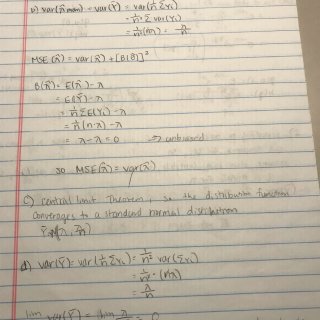 b) var(λ̂mom) = var(Ȳ) = var(1/n ΣYi)
= 1/n² Σ var(Yi)
= 1/n²(nλ) = λ/n
MSE(λ̂) = var(λ̂) + [B(θ̂)]²
B(λ̂) = E(λ̂) - λ
= E(Ȳ) - λ
= 1/n Σ E(Yi) - λ
= 1/n (n·λ) - λ
= λ - λ = 0 → unbiased
so MSE(λ̂) = var(λ̂)
c) Central limit Theorem, so the distribution function
converges to a standard normal distribution
(λ, λ/n)
d) var(Ȳ) = var(1/n ΣYi) = 1/n² var(ΣYi)
= 1/n² · (nλ)
= λ/n
lim var(Ȳ) = lim λ = 0